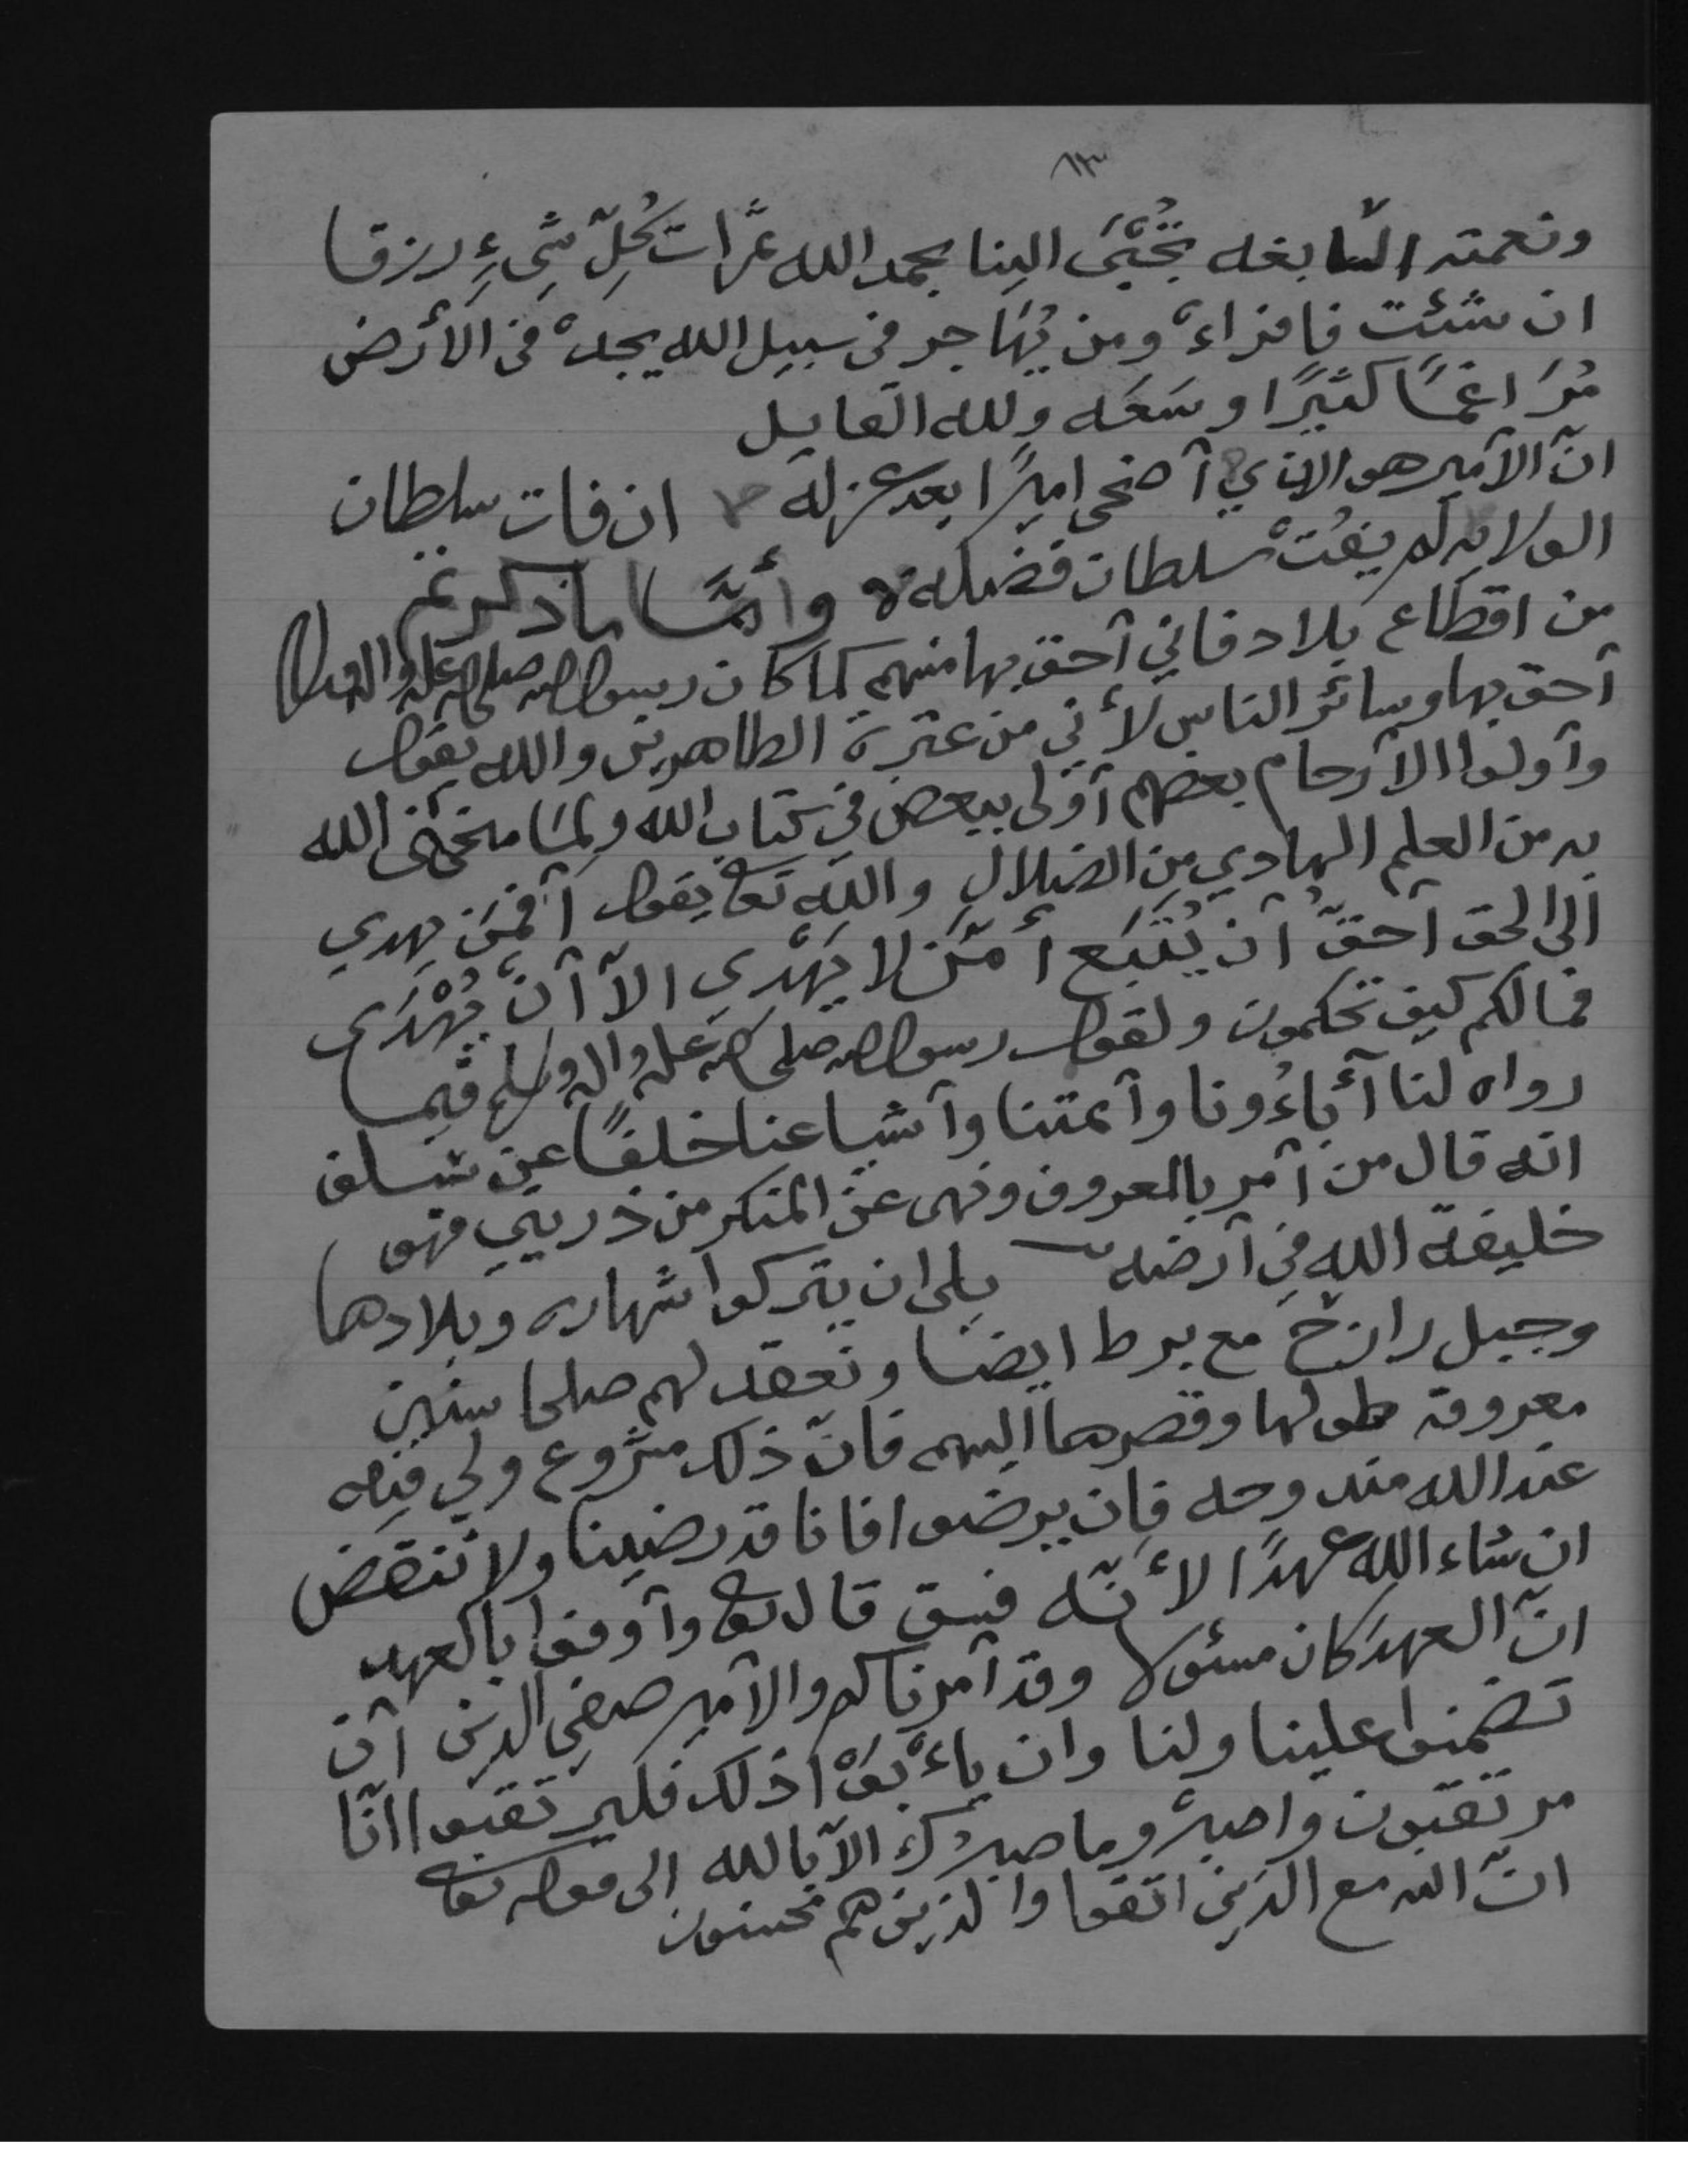 ١٣
ونعمته السَّابغه تُجْبَى الينا بحمد الله ثمرات كُلِّ شَىْءٍ رزقا
ان شئت فاقراءْ ومن يُهَاجر فى سبيل الله يجدْ فى الأرض
مُرَاغمًا كثيرًا وسَعَه ولله القايل
انّ الأمير هو الذي أضحى اميرًا بعد عزله ان فات سلطان
الولايه لم يفُتْ سلطان فضله ه وأمَّا ما ذكرتم
من اقطاع بلاد فاني أحق بها منهم كما كان رسول الله صلى الله عليه واله وسلم
أحق بها وسائر الناس لأني من عترة الطاهرين والله يقول
وأولوا الأرحام بعضهم أوْلى ببعض في كتاب الله ولِمَا منحنى الله
به من العلم الهادي مِن الضلال والله تعالى يقول أفمَن يهدي
الى الحق أحقّ أن يُتّبَع أمّن لا يَهْدّى الاّ أنْ يُهْدَى
فمالكم كيف تحكمون ولقول رسول الله صلى الله عليه واله وسلم فيما
رواه لنا أباءُونا وأئمتنا وأشياعنا خلفًا عن سلف
انه قال من أمر بالمعروف ونهى عن المنكر من ذريتي فهو
خليفة الله في أرضه بلى ان يتركوا شهاره وبلادها
وجبل رازح مع برط ايضا ونعقد لهم صلحا سنين
معروفه طولها وقصرها اليهم فانّ ذلك مشروع ولي فيه
عند الله مندوحه فان يرضوا فانا قد رضينا ولا ننقض
ان شاء الله عهدًا لأنّه فسق قال تعالى وأوفوا بالعهد
انّ العهدَ كان مسئولا وقد أمرناكم والأمير صفي الدين أن
تضمنوا علينا ولنا وان يأْبَوْا ذلك فليرتقبوا انّا
مرتقبون واصبرْ وما صبرُكَ الاّ بالله الى قوله تعالى
انّ الله مع الذين اتقوا والذين هم محسنون